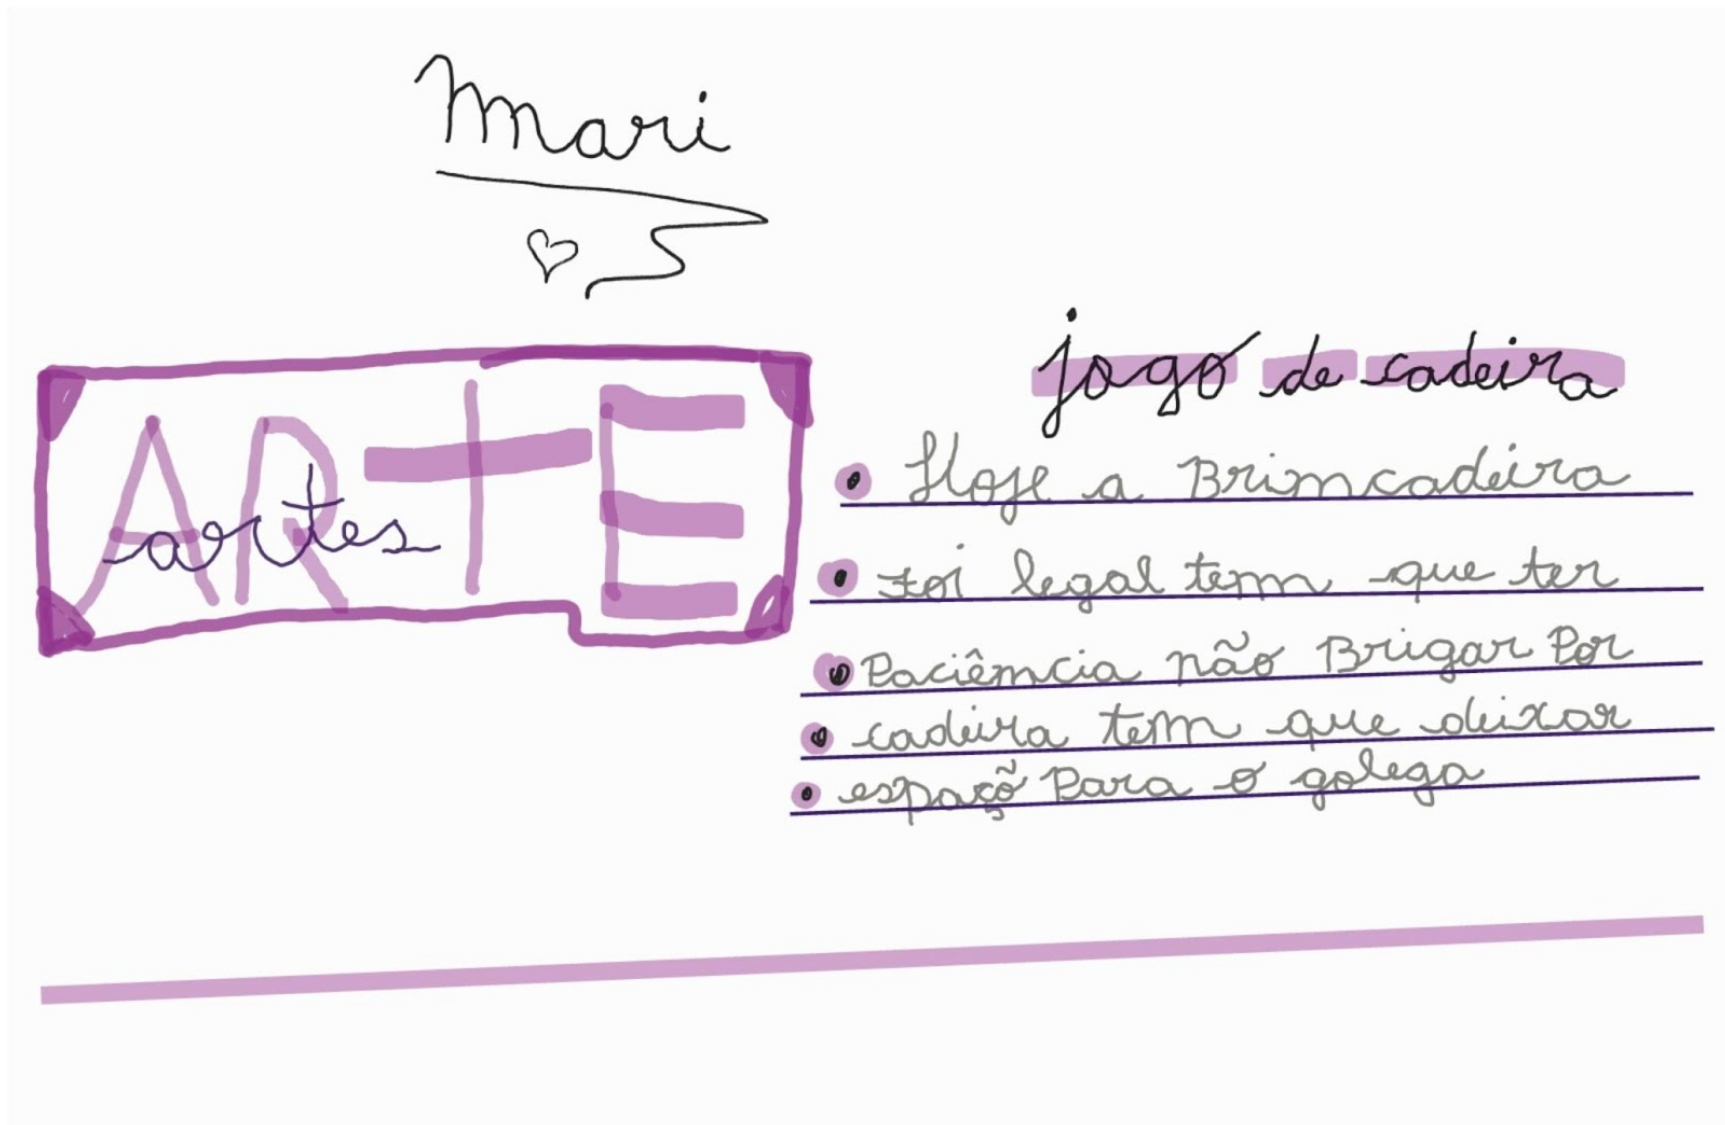 Mari
ARTE
artes
jogo de cadeira
Hoje a Brimcadeira
foi legal tem que ter
Paciêmcia não Brigar Por
cadeira tem que deixar
espaçõ Para o golega